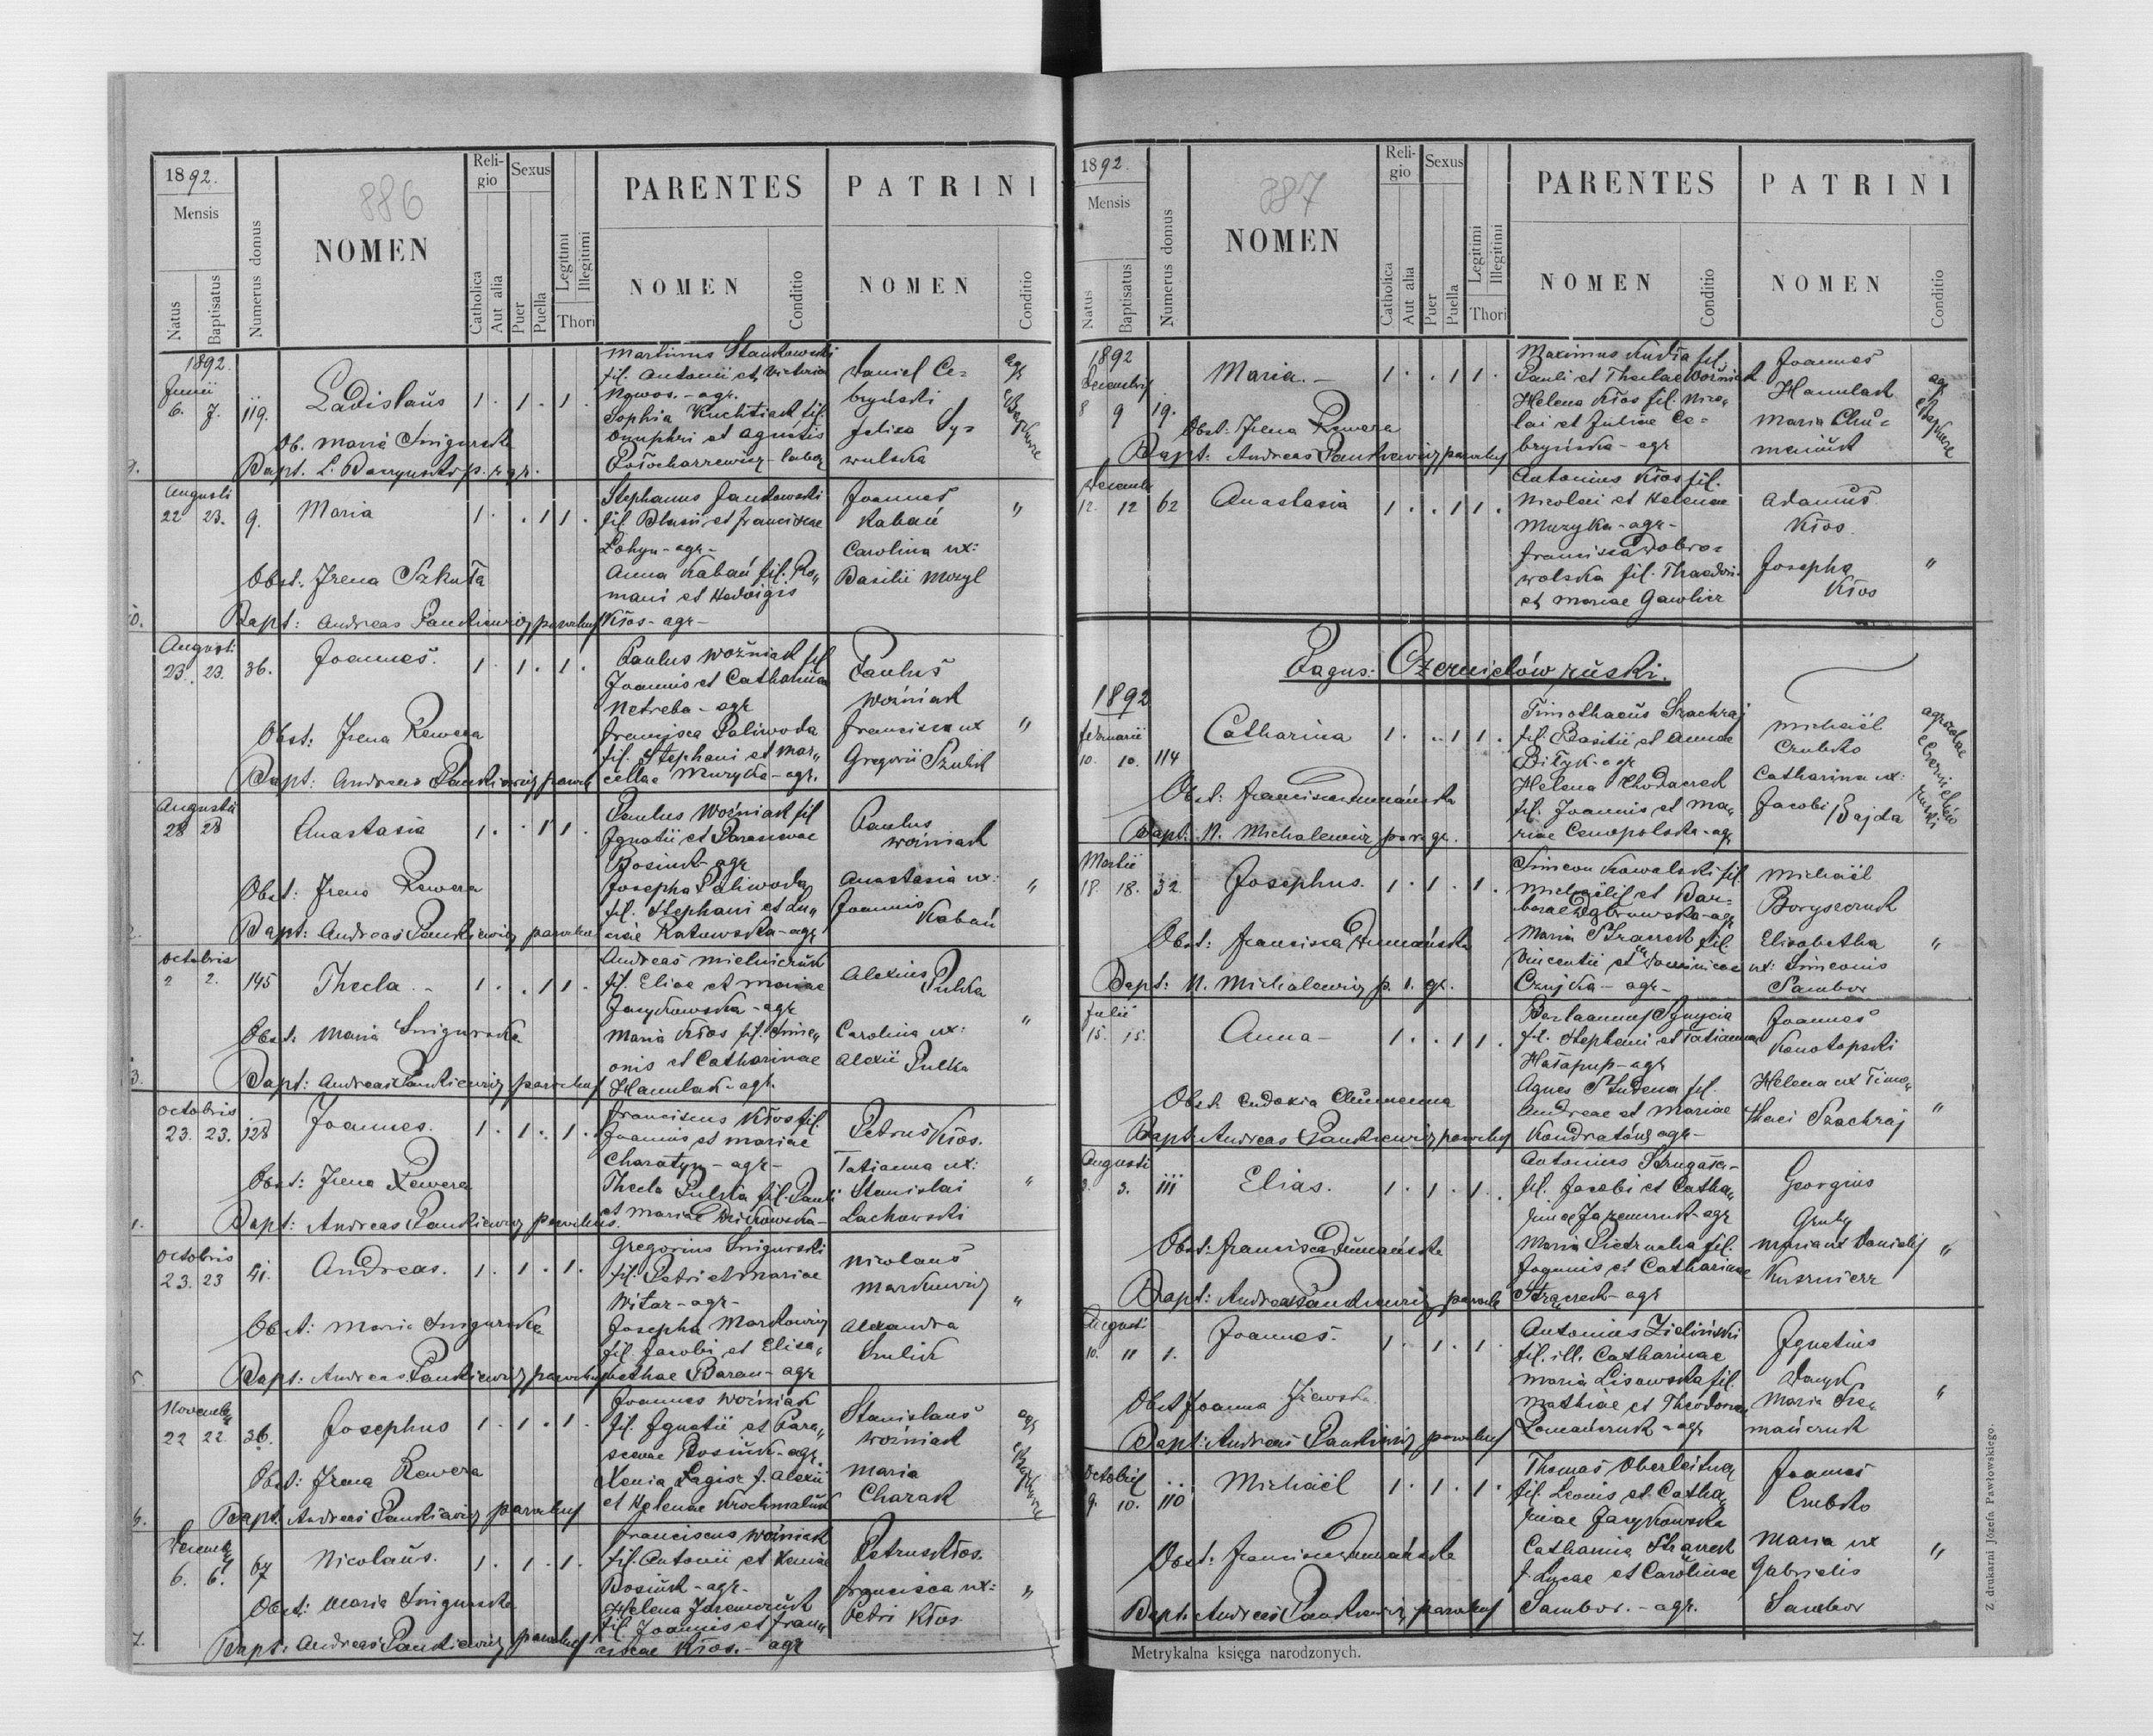 1892.
Mensis
Natus
Baptisatus
Numerus domus
886
NOMEN
Religio
Catholica
Aut alia
Sexus
Puer
Puella
Legitimi
Illegitimi
Thori
PARENTES
NOMEN
Conditio
PATRINI
NOMEN
Conditio
1892.
Junii
6. 7. 119. Ladislaus 1 . 1 . 1 .
Ob. Maria Snigurska
Martinus Stankowski
fil. Antonii et Victoria
Sophia Kuchciak fil.
Onuphri et Agnetis
Daniel Ce=
bryński
Felixa Sy=
wulska
agr
Augusti
22 23. 9. Maria 1 . . 1 1 .
Obst: Irena Szkuta
Bapt: Andreas Pankiewicz parochus
Stephanus Jankowski
fil Blasii et Franciscae
Łohyn - agr -
Anna Kabań fil: Ro„
mani et Hedvigis
Kłos - agr -
Joannes
Kabań
Carolina ux:
Basilii Mozyl
"
Augusti
23. 23. 36. Joannes. 1 . 1 . 1 .
Obst: Irena Rewera
Bapt: Andreas Pankiewicz paroch
Paulus Woźniak fil
Joannis et Catharina
Netreba - agr
Francisca Paliwoda
fil. Stephani et Mar„
cellae Muzyka - agr.
Paulus
Woźniak
Francisca ux
Gregorii Szulik
"
Augusti
28 28 Anastasia 1 . . 1 1 .
Obst: Irena Rewera
Bapt: Andreas Pankiewicz paroch
Paulus Woźniak fil
Ignatii et Parascevae
Bosiuk - agr
Josepha Paliwoda
fil. Stephani et Lu„
ciae Katowska - agr
Paulus
Woźniak
Anastasia ux:
Joannis
Kabań
"
Octobris
2 2. 145 Thecla. - 1 . . 1 1 .
Obst: Maria Snigurska
Bapt: Andreas Pankiewicz parochus
Andreas Mielniczuk
fil. Eliae et Mariae
Jarykowska - agr
Maria Kłos fil. Sime„
onis et Catharinae
Hamulak - agr.
Alexius
Pulka
Carolina ux:
Alexii Pulka
"
Octobris
23. 23. 128 Joannes. 1 . 1 . 1 .
Obst: Irena Rewera
Bapt: Andreas Pankiewicz parochus.
Franciscus Kłos fil.
Joannis et Mariae
Charatyn - agr -
Thecla Pulka fil. Pauli
Petrus Kłos.
Tatianna ux:
Stanislai
Lachowski
"
Octobris
23. 23 41. Andreas. 1 . 1 . 1 .
Obst: Maria Snigurska
Bapt: Andreas Pankiewicz parochus
Gregorius Snigurski
fil. Petri et Mariae
Witar - agr -
Josepha Markowicz
fil. Jacobi et Elisa„
bethae Baran - agr
Nicolaus
Markiewicz
Alexandra
Szulik
"
Novemb
22 22 36. Josephus 1 . 1 . 1 .
Obst: Irena Rewera
Bapt: Andreas Pankiewicz parochus
Joannes Woźniak
fil. Ignatii et Para„
scevae Bosiuk - agr.
Xenia Łagisz f. Alexii
et Helenae Krochmaluk
Stanislaus
Woźniak
Maria
Charak
agr
Decemb
6. 6. 67 Nicolaus. 1 . 1 . 1 .
Obst: Maria Snigurska
Bapt: Andreas Pankiewicz parochus
Franciscus Woźniak
fil. Antonii et Xeniae
Bosiuk - agr -
Helena Jaremczuk
fil. Joannis et Fran„
ciscae Kłos. - agr
Petrus Kłos.
Francisca ux:
Petri Kłos
"
1892.
Mensis
Natus
Baptisatus
Numerus domus
887
NOMEN
Religio
Catholica
Aut alia
Sexus
Puer
Puella
Legitimi
Illegitimi
Thori
PARENTES
NOMEN
Conditio
PATRINI
NOMEN
Conditio
1892
Decembris
8 9 19. Maria. - 1 . . 1 1 .
Obst: Irena Rewera
Bapt: Andreas Pankiewicz parochus
Maximus Kudła fil.
Pauli et Theclae Woźniak
Helena Kłos fil. Nico„
lai et Juliae Ce=
bryńska - agr
Joannes
Hamulak
Maria Chu=
meniuk
agr
Decemb
12. 12 62 Anastasia 1 . . 1 1 .
Antonius Kłos fil.
Nicolai et Helenae
Muzyka - agr -
Francisca Dobro=
wolska fil. Thaddei
et Mariae Gawlicz
Adamus
Kłos.
Josepha
Kłos
"
Pagus: Czernielów ruski.
1892
Februarii
10. 10. 114 Catharina 1 . . 1 1 .
Obst: Francisca Dumańska
Bapt. N. Michalewicz par. gr.
Timothaeus Szachraj
fil. Basilii et Annae
Biłyk - agr
Helena Chodaczek
fil. Joannis et Ma„
riae Cenopolska - agr
Michaël
Czubko
Catharina ux:
Jacobi Bajda
agricolae
Czernielów
ruski
Martii
18. 18. 32. Josephus. 1 . 1 . 1 .
Obst: Francisca Dumańska
Bapt: N. Michalewicz p. r. gr.
Simeon Kowalski fil.
Michaëlis et Bar=
barae Dąbrowska - agr
Maria Strączek fil.
Vincentii et Dominicae
Czujka - agr -
Michaël
Borysczuk
Elisabetha
ux: Simeonis
Sambor
"
Julii
15. 15. Anna - 1 . . 1 1 .
Obst: Eudoxia Chumenna
Bapt: Andreas Pankiewicz parochus
fil. Stephani et Tatiannae
Hałapup - agr
Agnes Studena fil.
Andreae et Mariae
Joannes
Konotopski
Helena ux Timo„
thaei Szachraj
"
Augusti
3. 3. 111 Elias. 1 . 1 . 1 .
Obst: Francisca Dumańska
Bapt: Andreas Pankiewicz paroch
Antonius Strugała -
fil. Jacobi et Catha„
rinae Jaremczuk - agr
Maria Pietrucha fil.
Joannis et Catharinae
Strączek - agr
Georgius
Gruby
Maria ux Danielis
Kuszmierz
"
Augusti
10. 11 1. Joannes. 1 . 1 . 1 .
Obst Joanna
Bapt: Andreas Pankiewicz parochus
Antonius Zieliński
fil. ill. Catharinae
Maria Lisowska fil.
Mathiae et Theodorae
Romańczuk - agr
Ignatius
Danyk
Maria Sze„
mańczuk
"
Octobris
9. 10. 110 Michaël 1 . 1 . 1 .
Obst: Francisca Dumańska
Bapt: Andreas Pankiewicz parochus
Thomas Oberleitner
fil. Leonis et Catha„
rinae Jarykowska
Catharina Strączek
f. Lucae et Carolinae
Sambor. - agr.
Joannes
Czubko
Maria ux
Gabrielis
Sambor
"
Metrykalna księga narodzonych.
Z drukarni Józefa Pawłowskiego.